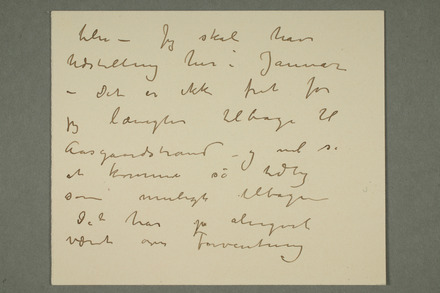 blir – Jeg skal have
Udstilling her i Januar
– Det er ikke frit for
jeg længter tilbage til
Aasgaardstrand – og vil se
at komme så tidlig
som muligt tilbage
Det har jo alligevel
været over Forventning